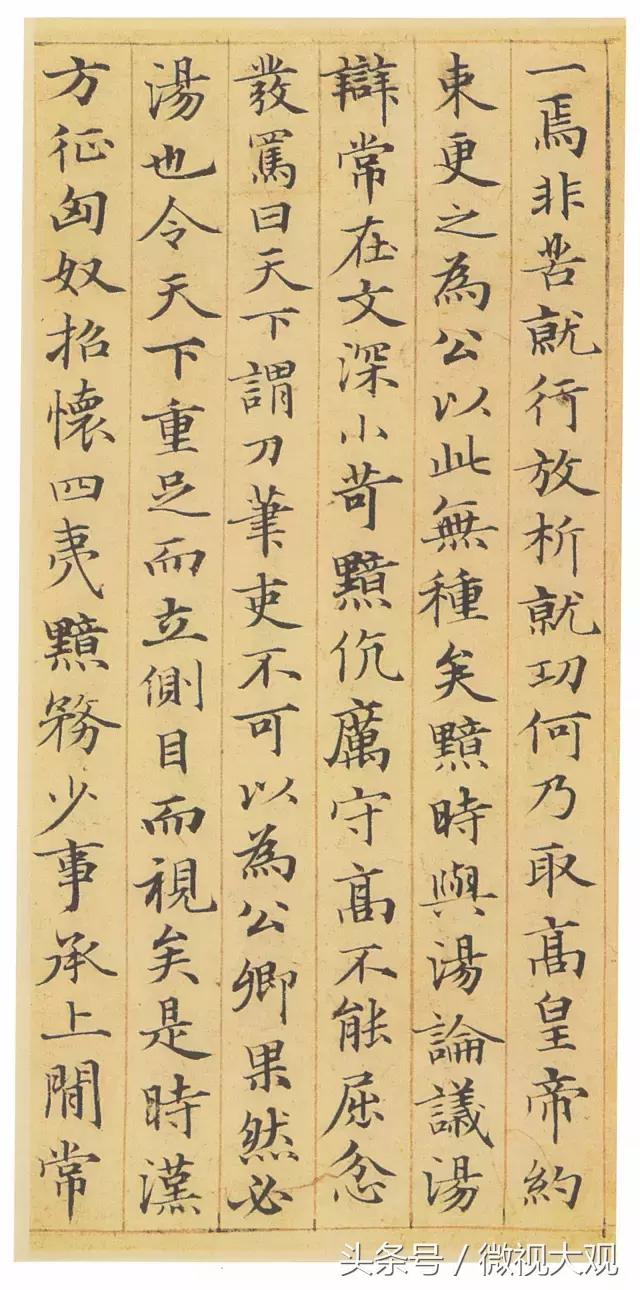 一焉非苦就行放析就功何乃取髙皇帝約
束更之為公以此無種矣黯時與湯論議湯
辯常在文深小苛黯伉厲守髙不能屈忿
發罵曰天下謂刀筆吏不可以為公卿果然必
湯也令天下重足而立側目而視矣是時漢
方征匈奴招懷四夷黯務少事承上間常
头条号/微视大观